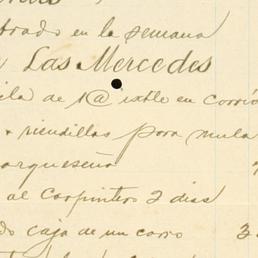 brado en la semana
Las Mercedes
ila de 1@ ixtle en corrió
riendillas para mula
arqueseño
al carpintero 2 dias
do caja de un carro 3